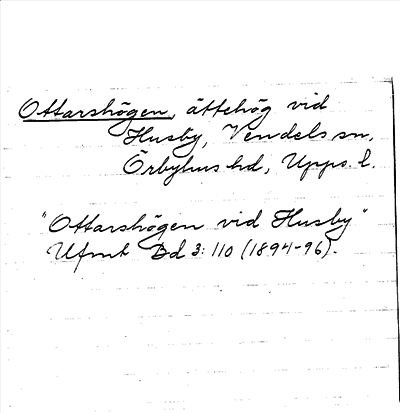 Ottarshögen, ättehög vid
Husby, Vendels sn,
Örbyhus hd, Upps. l.
"Ottarshögen vid Husby"
Ufmt Bd 3: 110 (1894-96).